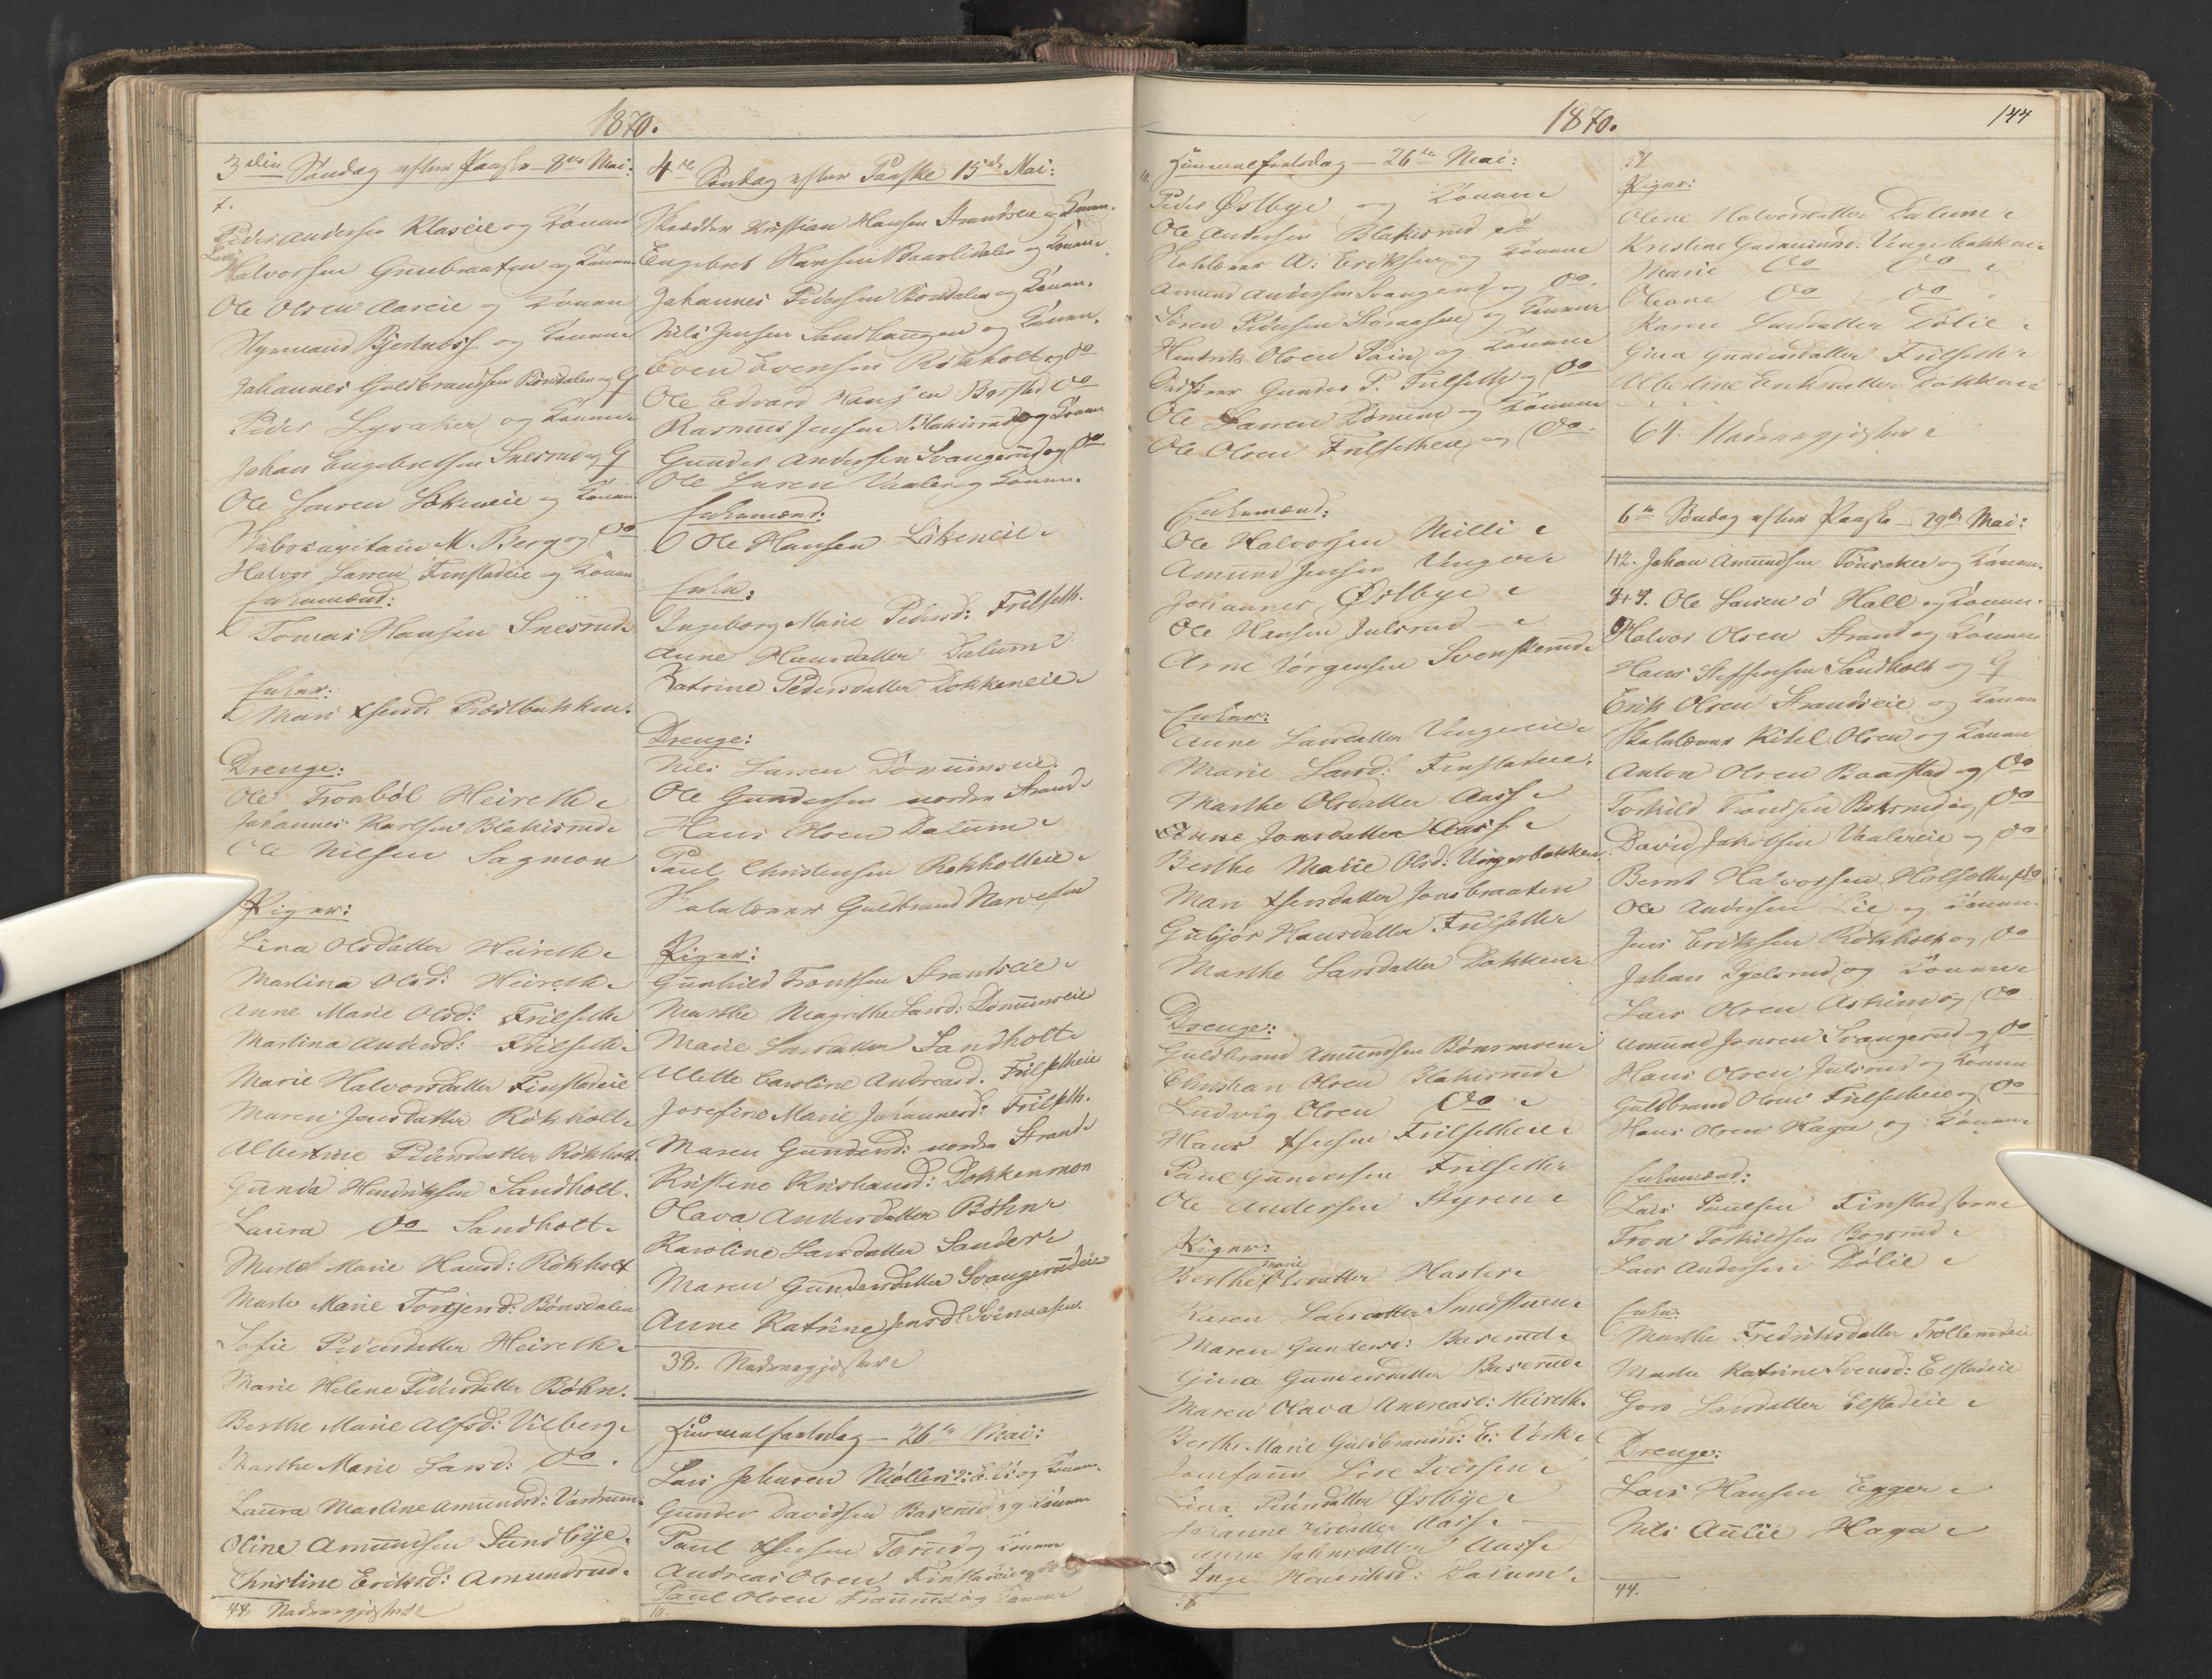 1870.
3die Søndag efter Paaske 8de Mai:
7.
Peder Andersen Klaseie og Konen
Lars
Halvorsen Grinbraaten og Konen
Ole Olsen Aaseie og Konen
Bjertnæss og Konen
Johannes Guldbrandsen Bønsdalen og G
Peder Lysaker og Konen
Johan Engebretsen Snesrud og G
Ole Larsen og Konen
M. Berg og Do
Halvor Larsen Finstadeie og Konen
Enkemænd:
Tomas Hansen Snesrud
Enker:
Mari
Drenge:
Ole Tronbøl Heireth
Johannes Karlsen Blakisrud
Ole Nilsen Sagmon
Piger:
Lina Olsdatter Heireth
Martina Olsd: Heireth
Anne Marie Olsd: Frilseth
Martina Andersd: Frilseth
Marie Halvorsdatter Finstadeie
Maren Jensdatter Rökholt
Albertine Pedersdatter Rökholt
Gunda Hendriksen Sandholt
Laura Do Sandholt
Marthe Marie Hansd: Rökholt
Marthe Marie Torgersd: Bønsdalen
Sofie Pedersdatter Heireth
Marie Helene Pedersdatter Böhn
Berthe Marie Alfsd: Vilberg
Marthe Marie Larsd: Do
Laura Martine Amundsd:
Oline Amundsen Sundbye
Christine Eriksd: Amundrud
44. Nadvergjester
4de Søndag efter Paaske 15de Mai:
Skrædder Kristian Hansen Strandseie og Konen
Engebret Hansen og Konen
Johannes Pedersen Bönsdalen og Konen
Nils Jensen Sandhaugen og Konen
Even Evensen Rökholt og Do
Ole Edvard Hansen Do
Rasmus Jensen Blakisrud og Konen
Gunder Andersen Svangerud og Do
Ole Larsen Vaaler og Konen
Enkemænd:
Ole Hansen
Enker:
Ingeborg Marie Pedersd: Frilseth
Anne Hansdatter Dalum
Katrine Pedersdatter Dokkeneie
Drenge:
Nils Larsen Dönnumseie
Ole Gundersen nordre Strand
Hans Olsen Dalum
Paul Christensen Rökholteie
Guldbrand Narvesen
Piger:
Gunhild Trondsen Strandseie
Marthe Magrethe Larsd: Dönnumseie
Marie Larsdatter Sandholt
Mette Caroline Andreasd. Frilsetheie
Josefine Marie Johannesd: Frilseth
Maren Gundersd: nordre Strand
Kristine Kristiansd: Dokkenmon
Olava Andersdatter Böhn
Karoline Larsdatter Sander
Maren Gundersdatter Svangerudeie
Anne Katrine Jensd:
38. Nadvergjester
Himmelfartsdag 26de Mai:
Lars Johnsen og Konen
Gunder Davidsen Baserud og Konen
Paul og Konen
Andreas Olsen Finstadeie og Do
Paul Olsen og Konen
10.
1870.
144
Himmelfartsdag 26de Mai:
10.
Peder Østbye og Konen
Ole Andersen Blakisrud
A: Eriksen og Konen
Amund Andersen Svangerud og Do
Sören Pedersen og Konen
Hendrik Olsen og Konen
Gunder P. Frilseth og Do
Ole Larsen Dönnum og Konen
Ole Olsen Frilsetheie og Do
Enkemænd:
Ole Halvorsen Milli
Amund Jensen Unger
Johannes Østbye
Ole Hansen Julsrud
Arne Jörgensen Svenskerud
Enker:
Anne Larsdatter Ungereie
Marie Larsd: Finstadeie
Marthe Olsdatter Aass
Anne Jonsdatter Aass
Berthe Marie Olsd: Ungersbakken
Mari Jensdatter Jonsbraaten
Gubjör Hansdatter Frilseth
Marthe Larsdatter Dokken
Drenge:
Guldbrand Amundsen Bönsmoen
Christian Olsen Blakisrud
Ludvig Olsen Do
Hans Frilsetheie
Paul Gundersen Frilseth
Ole Andersen Styren
Piger:
Berthe Marie Olsdatter
Karen Larsdatter Smedstuen
Maren Gundersd: Baserud
Gina Gundersdatter Baserud
Maren Olava Andreasd: Heireth
Berthe Marie Guldbrandsd: E: Værk
Jomfru Lise Iversen
Lina Pedersdatter Østbye
Johanne Olsdatter Aass
Anne Aass
Inge Henriksd: Dalum
57
57.
Piger:
Oline Halvorsdatter Dalum
Kristine Gudmundsd: Ungersbakken
Marie Do Do
Oleane Do Do
Karen Larsdatter Dölie
Gina Gundersdatter Frilseth
Albertine Eriksdatter Dokken
64. Nadvergjester
6te Søndag efter Paaske 29de Mai:
1+2. Johan Amundsen Tönsaker og Konen
3+4. Ole Larsen ö Hall og Konen
Halvor Olsen Strand og Konen
Hans Steffensen Sandholt og G
Erik Olsen Strandseie og Konen
Skolelærer Kitel Olsen og Konen
Anton Olsen Baarstad og Do
Torkild Trondsen og Do
David Jakobsen Vaalereie og Do
Bernt Halvorsen og Do
Ole Andersen Lie og Konen
Jens Eriksen Rökholt og Do
Johan og Konen
Lars Olsen Askim og Do
Amund Jonsen Svangerud og Do
Hans Olsen Julsrud og Konen
Guldbrand Olsen Frilsetheie og Do
Hans Olsen Haga og Konen
Enkemænd:
Lars Paulsen
Tron Torkildsen
Lars Andersen Dölie
Enker:
Marthe Fredriksdatter
Marthe Katrine Svensd: Elstadeie
Goro Larsdatter Elstadeie
Drenge:
Lars Hansen Egger
Nils Aulie Haga
44.